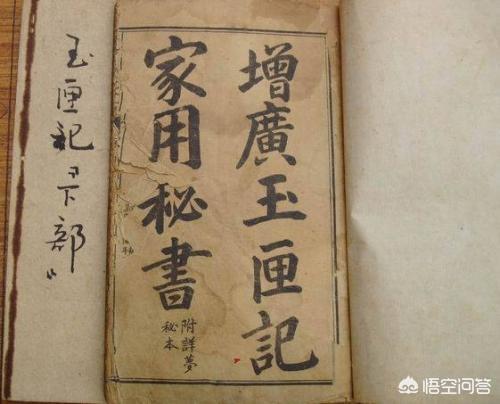 增廣玉匣記
家用秘書
附詳夢
秘本
玉匣記“下部”
悟空问答